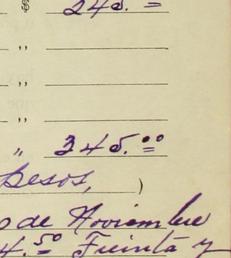 $ 245. =
"
"
"
" 345.00
Pesos, )
o de Noviembre
4.50 Treinta y